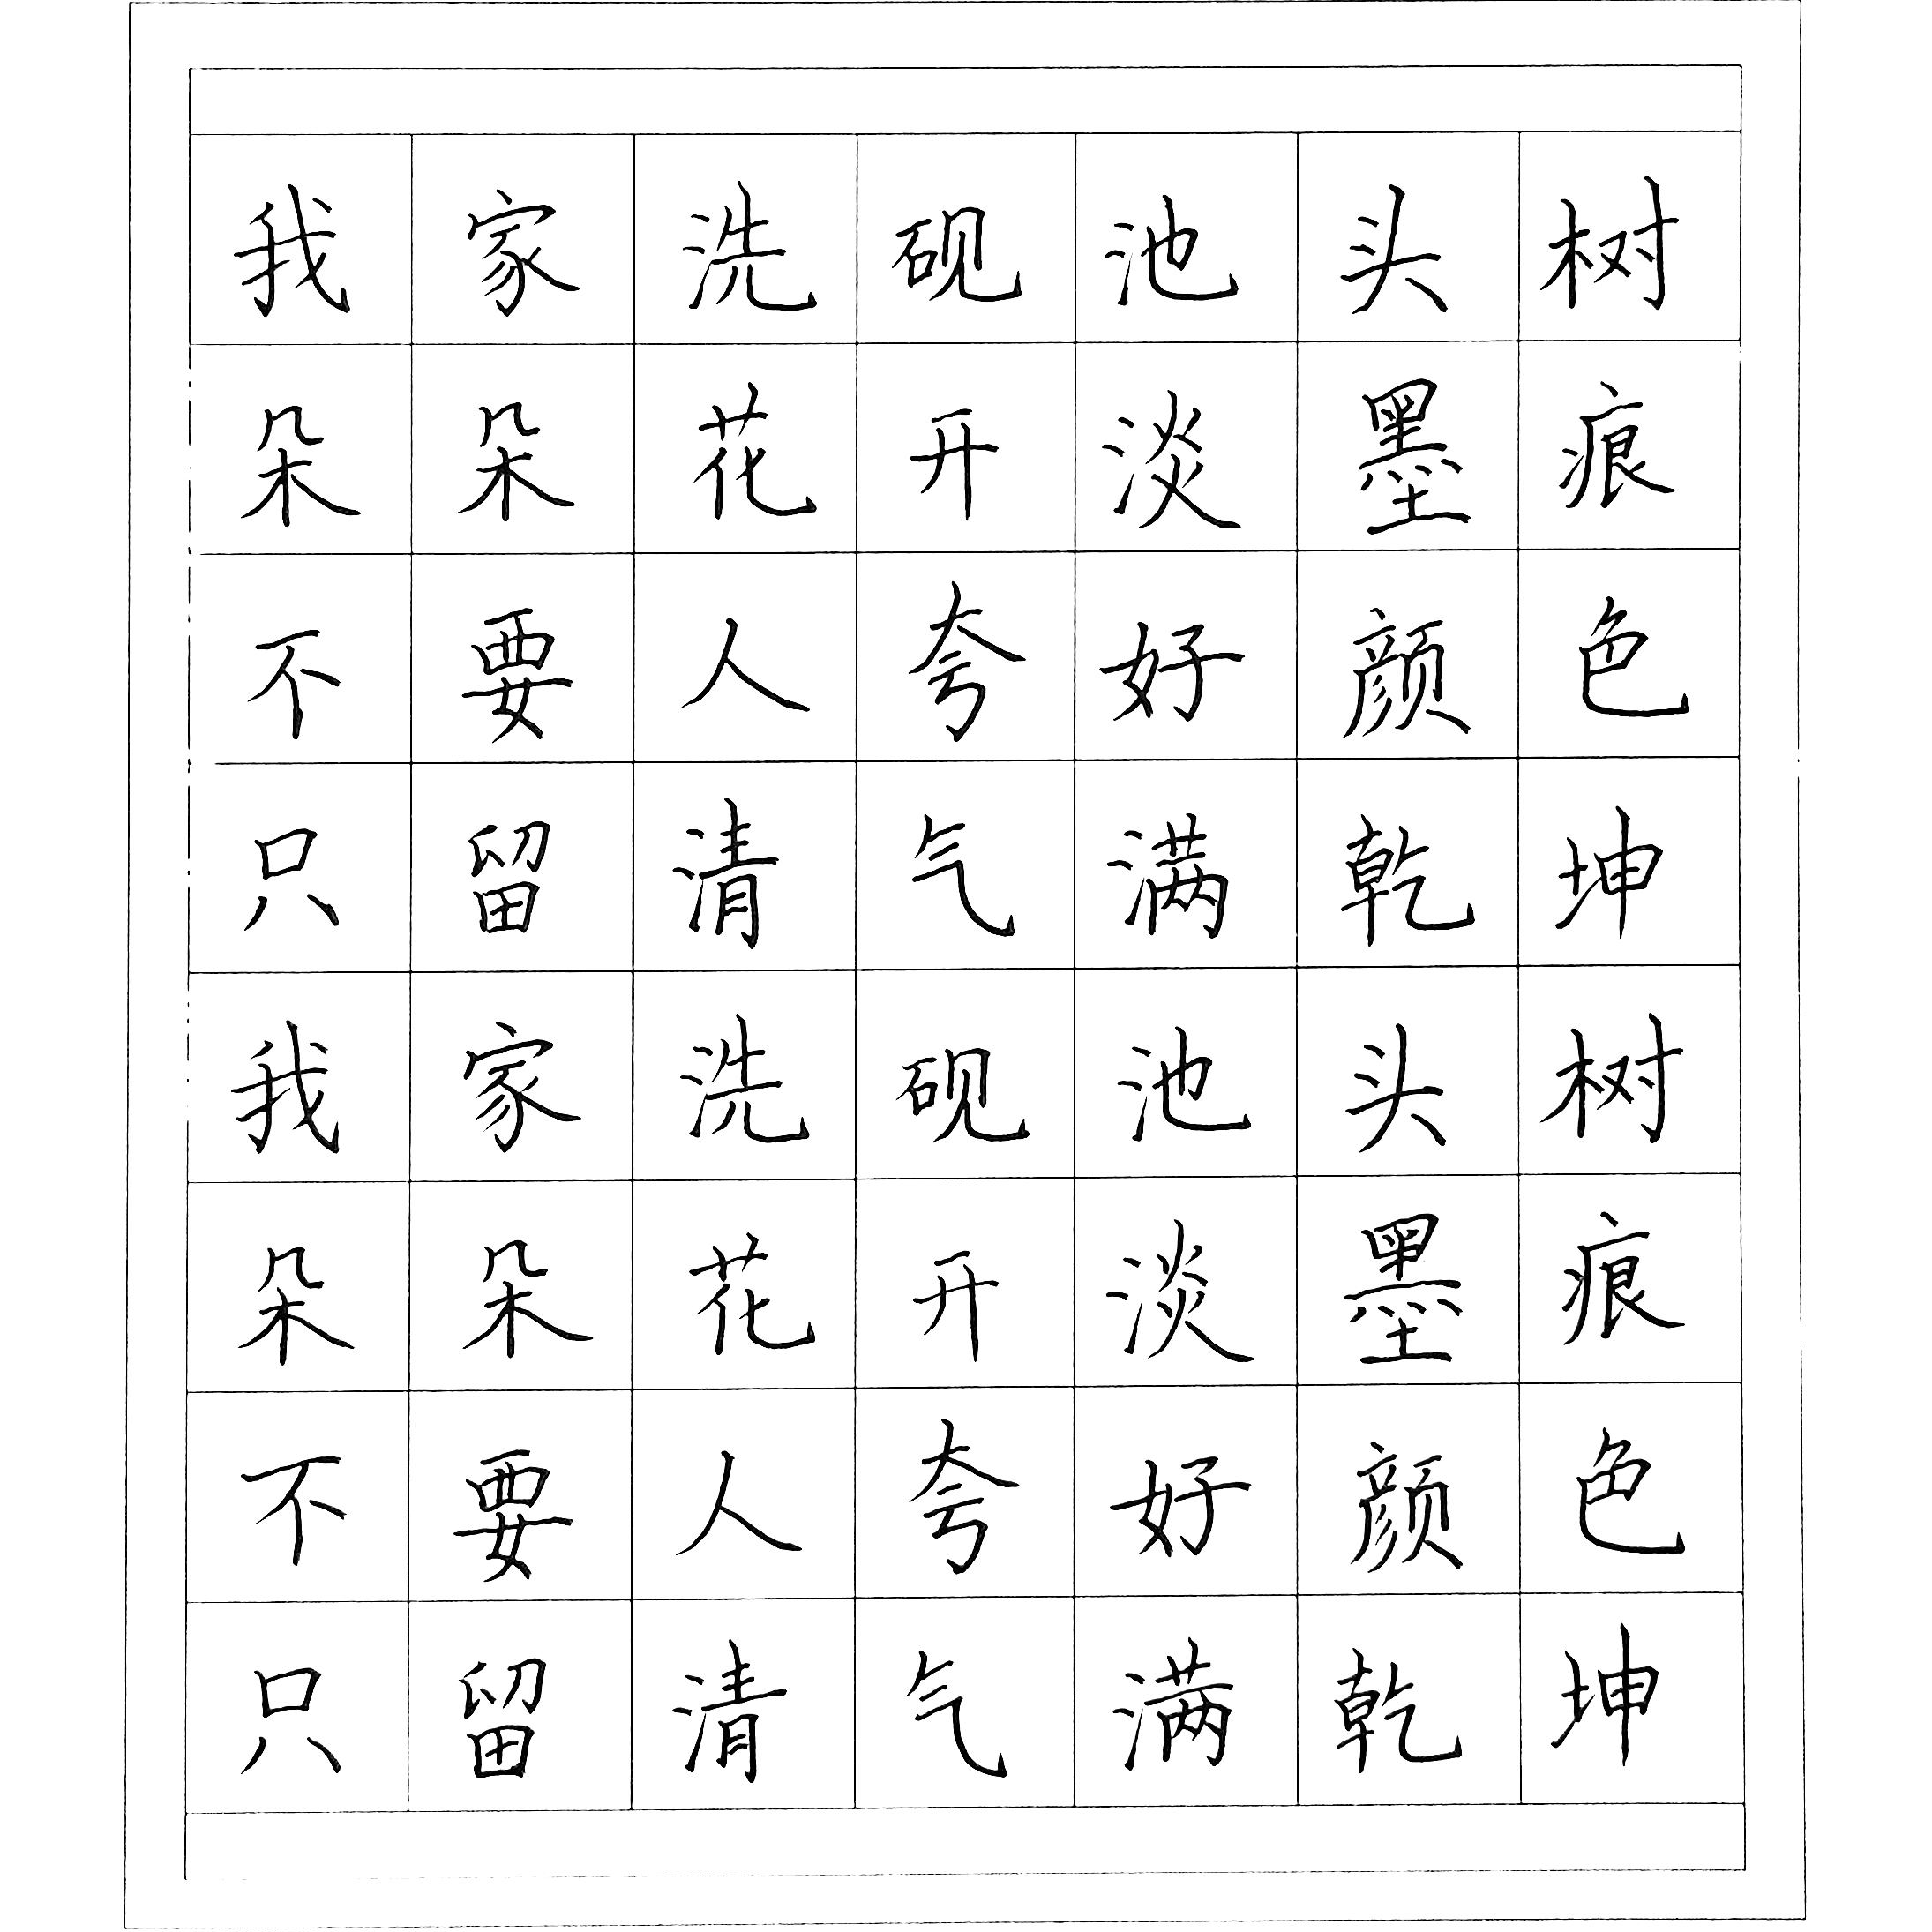 我家洗砚池头树
朵朵花开淡墨痕
不要人夸好颜色
只留清气满乾坤
我家洗砚池头树
朵朵花开淡墨痕
不要人夸好颜色
只留清气满乾坤